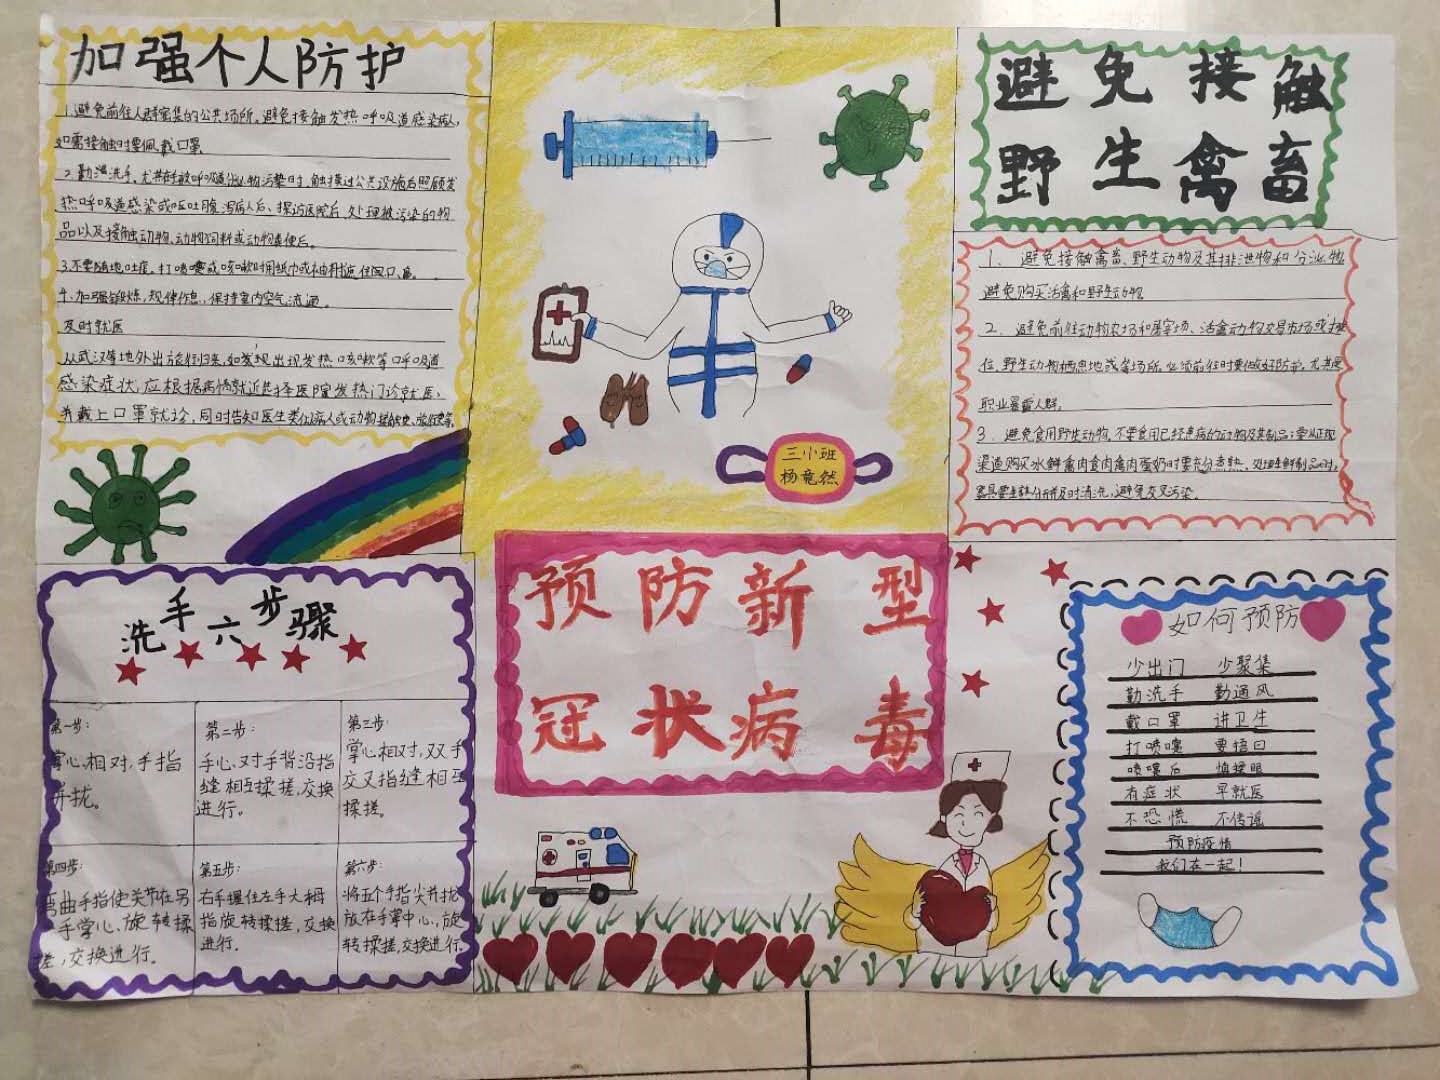 加强个人防护
1.避免前往人群密集的公共场所。避免接触发热呼吸道感染病人,
如需接触时要佩戴口罩
2.勤洗手。尤其在手被呼吸道分泌物污染时、触摸过公共设施后照顾发
热呼吸道感染或呕吐腹泻病人后、探访医院后、处理被污染的物
品以及接触动物、动物饲料或动物粪便后。
3.不要随地吐痰。打喷嚏或咳嗽时用纸巾或袖肘遮住口、鼻。
4、加强锻炼,规律作息,保持室内空气流通。
及时就医
从武汉等地外出旅行归来,如发现出现发热咳嗽等呼吸道
感染症状,应根据病情就近选择医院发热门诊就医,
并戴上口罩就诊,同时告知医生类似病人或动物接触史、旅行史等。
三小班
杨竟然
避免接触
野生禽畜
1、避免接触禽畜、野生动物及其排泄物和分泌物
避免购买活禽和野生动物
2、避免前往动物农场和屠宰场、活禽动物交易市场或摊
位、野生动物栖息地或等场所。必须前往时要做好防护,尤其是
职业暴露人群。
3、避免食用野生动物。不要食用已经患病的动物及其制品;要从正规
渠道购买冰鲜禽肉食肉禽肉蛋奶时要充分煮熟,处理生鲜制品时,
器具要生熟分开并及时清洗,避免交叉污染。
预防新型
冠状病毒
洗手六步骤
第一步:
掌心相对,手指
并拢。
第二步:
手心对手背沿指
缝相互揉搓,交换
进行。
第三步:
掌心相对,双手
交叉指缝相互
揉搓。
第四步:
弯曲手指使关节在另
一手掌心旋转揉
搓,交换进行。
第五步:
右手握住左手大拇
指旋转揉搓,交换
进行。
第六步:
将五个手指尖并拢
放在手掌中心,旋
转揉搓,交换进行
如何预防
少出门 少聚集
勤洗手 勤通风
戴口罩 讲卫生
打喷嚏 要捂口
喷嚏后 慎揉眼
有症状 早就医
不恐慌 不传谣
预防疫情
我们在一起!